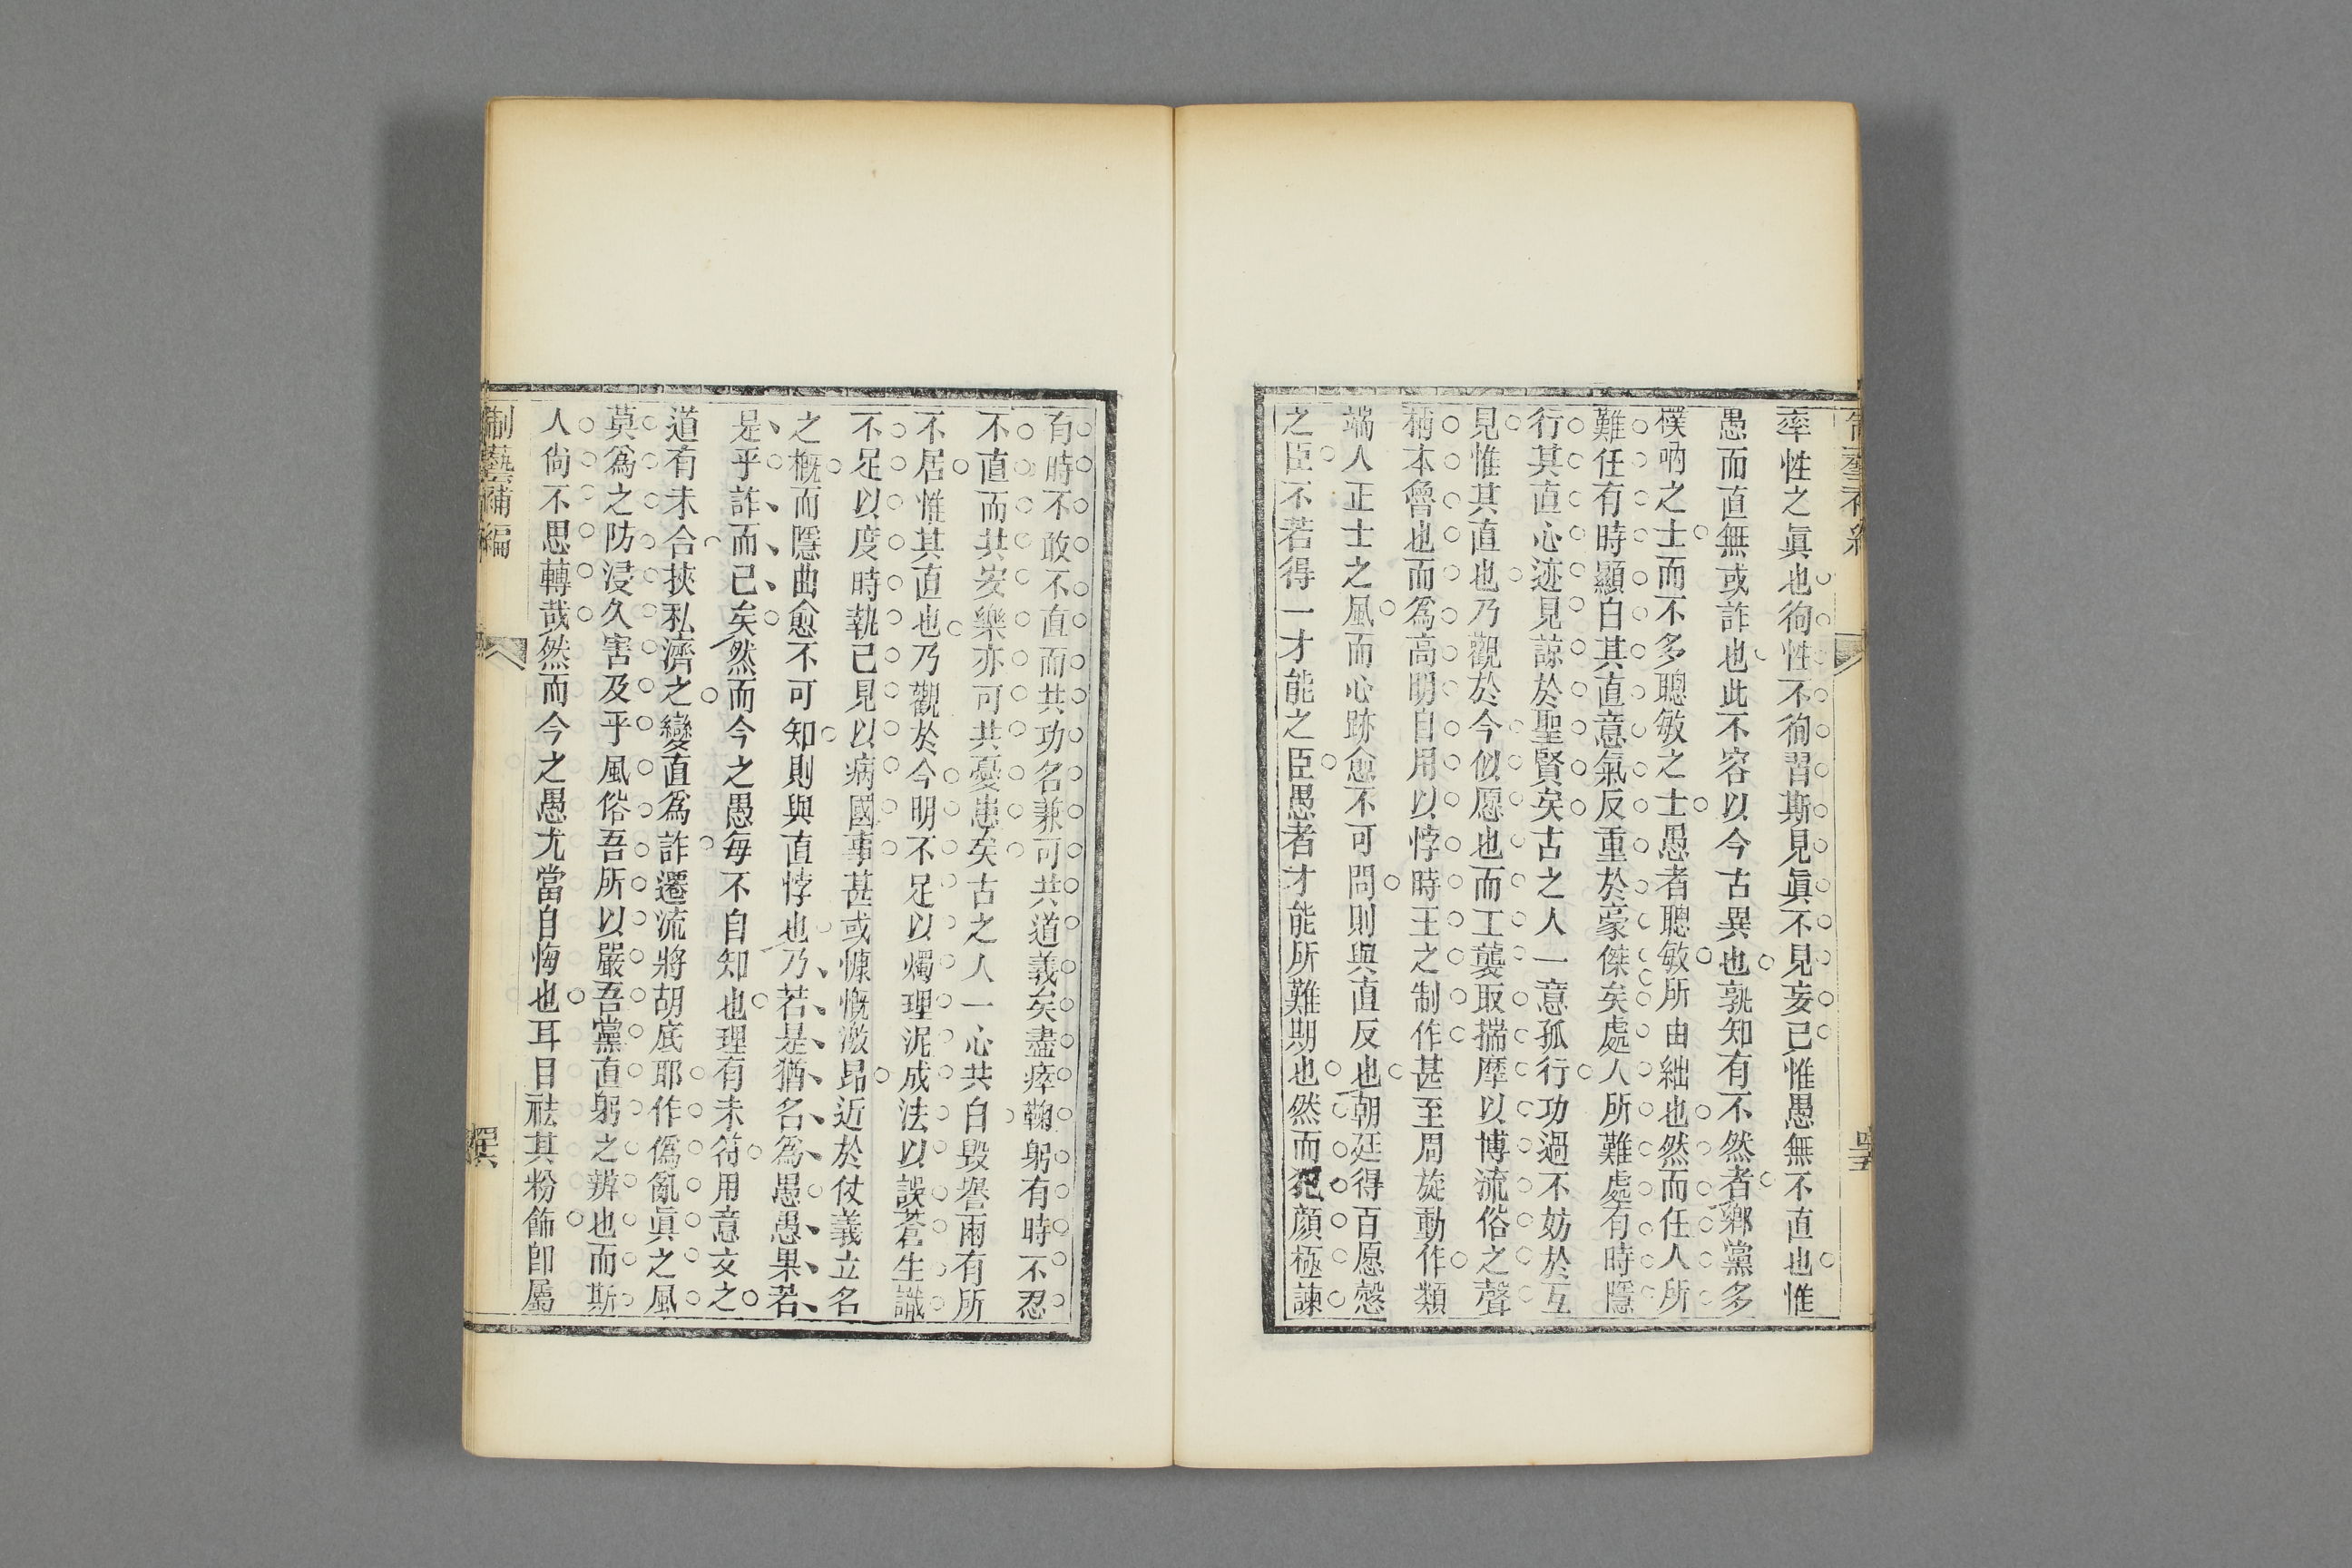 率性之眞也徇性不徇習斯見眞不見妄已惟愚無不直也惟
愚而直無或詐也此不容以今古異也孰知有不然者鄉黨多
樸吶之士而不多聰敏之士愚者聰敏所由絀也然而任人所
難任有時顯白其直意氣反重於豪傑矣處人所難處有時隱
行其直心迹見諒於聖賢矣古之人一意孤行功過不妨於互
見惟其直也乃觀於今似愿也而工襲取揣摩以博流俗之聲
稱本魯也而爲高明自用以悖時王之制作甚至周旋動作類
端人正士之風而心跡愈不可問則與直反也朝廷得百愿慤
之臣不若得一才能之臣愚者才能所難期也然而犯顏極諫
有時不敢不直而共功名兼可共道義矣盡瘁鞠躬有時不忍
不直而共安樂亦可共憂患矣古之人一心共白毀譽兩有所
不居惟其直也乃觀於今明不足以燭理泥成法以誤蒼生識
不足以度時執己見以病國事甚或慷慨激昂近於仗義立名
之概而隱曲愈不可知則與直悖也乃若是猶名爲愚愚果若
是乎詐而已矣然而今之愚每不自知也理有未符用意文之
道有未合挾私濟之變直爲詐遷流將胡底耶作僞亂眞之風
莫爲之防浸久害及乎風俗吾所以嚴吾黨直躬之辨也而斯
人倘不思轉哉然而今之愚尤當自悔也耳目祛其粉飾卽屬
制藝補編